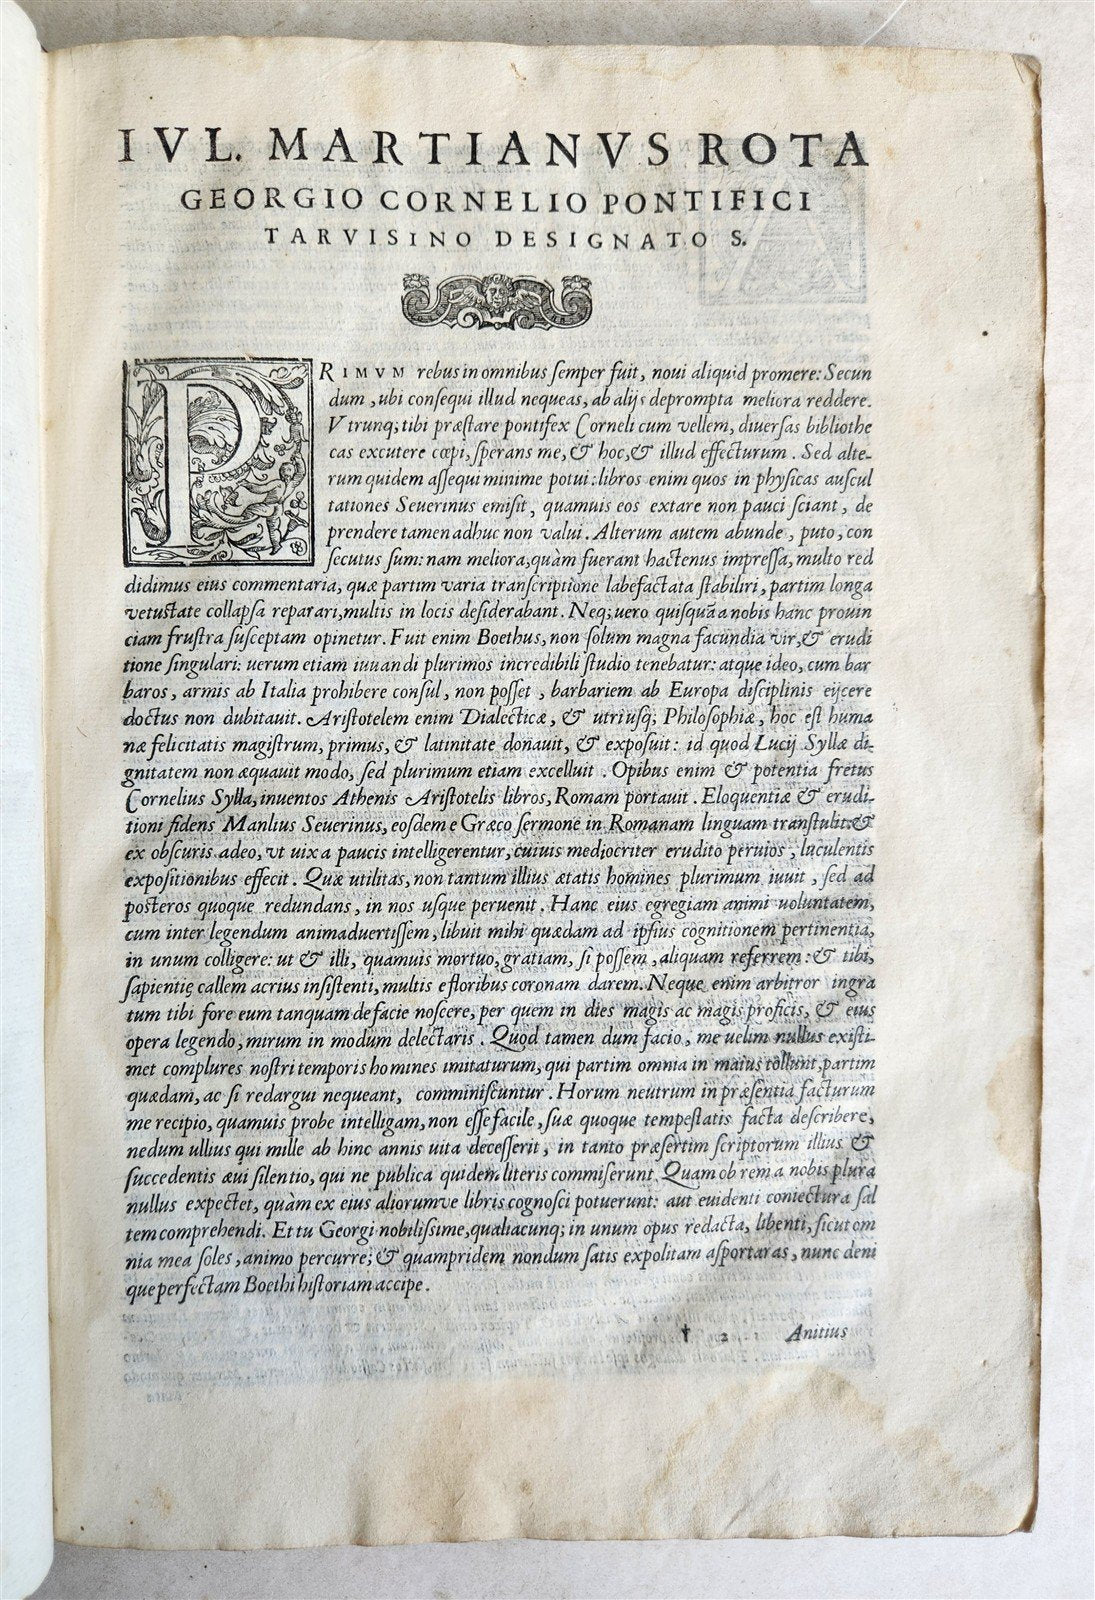 IVL. MARTIANVS ROTA
GEORGIO CORNELIO PONTIFICI
TARVISINO DESIGNATO S.
PRIMVM rebus in omnibus ſemper fuit, noui aliquid promere: Secun
dum, ubi conſequi illud nequeas, ab alijs deprompta meliora reddere.
Vtrunq; tibi præſtare pontifex Corneli cum vellem, diuerſas bibliothe
cas excutere cœpi, ſperans me, & hoc, & illud effecturum. Sed alte-
rum quidem aſſequi minime potui: libros enim quos in phyſicas auſcul
tationes Seuerinus emiſit, quamuis eos extare non pauci ſciant, de
prendere tamen adhuc non valui. Alterum autem abunde, puto, con
ſecutus ſum: nam meliora, quàm fuerant hactenus impreſſa, multo red
didimus eius commentaria, quæ partim varia tranſcriptione labefactata ſtabiliri, partim longa
vetuſtate collapſa reparari, multis in locis deſiderabant. Neq; uero quiſquā a nobis hanc prouin
ciam fruſtra ſuſceptam opinetur. Fuit enim Boethus, non ſolum magna facundia vir, & erudi
tione ſingulari: uerum etiam iuuandi plurimos incredibili ſtudio tenebatur: atque ideo, cum bar
baros, armis ab Italia prohibere conſul, non poſſet, barbariem ab Europa diſciplinis eijcere
doctus non dubitauit. Ariſtotelem enim Dialecticæ, & utriuſq; Philoſophiæ, hoc eſt huma
næ felicitatis magiſtrum, primus, & latinitate donauit, & expoſuit: id quod Lucij Syllæ di-
gnitatem non æquauit modo, ſed plurimum etiam excelluit. Opibus enim & potentia fretus
Cornelius Sylla, inuentos Athenis Ariſtotelis libros, Romam portauit. Eloquentiæ & erudi-
tioni fidens Manlius Seuerinus, eoſdem e Græco ſermone in Romanam linguam tranſtulit: &
ex obſcuris adeo, vt uix a paucis intelligerentur, cuiuis mediocriter erudito peruios, luculentis
expoſitionibus effecit. Quæ utilitas, non tantum illius ætatis homines plurimum iuuit, ſed ad
poſteros quoque redundans, in nos uſque peruenit. Hanc eius egregiam animi uoluntatem,
cum inter legendum animaduertiſſem, libuit mihi quædam ad ipſius cognitionem pertinentia,
in unum colligere: ut & illi, quamuis mortuo, gratiam, ſi poſſem, aliquam referrem: & tibi,
ſapientię callem acrius inſiſtenti, multis e floribus coronam darem. Neque enim arbitror ingra
tum tibi fore eum tanquam de facie noſcere, per quem in dies magis ac magis proficis, & eius
opera legendo, mirum in modum delectaris. Quod tamen dum facio, me uelim nullus exiſti-
met complures noſtri temporis homines imitaturum, qui partim omnia in maius tollunt, partim
quædam, ac ſi redargui nequeant, comminiſcuntur. Horum neutrum in præſentia facturum
me recipio, quamuis probe intelligam, non eſſe facile, ſuæ quoque tempeſtatis facta deſcribere,
nedum ullius qui mille ab hinc annis uita deceſſerit, in tanto præſertim ſcriptorum illius &
ſuccedentis æui ſilentio, qui ne publica quidem literis commiſerunt. Quam ob rem a nobis plura
nullus expectet, quàm ex eius aliorumve libris cognoſci potuerunt: aut euidenti coniectura ſal
tem comprehendi. Et tu Georgi nobiliſsime, qualiacunq; in unum opus redacta, libenti, ſicut om
nia mea ſoles, animo percurre; & quampridem nondum ſatis expolitam aſportaras, nunc deni
que perfectam Boethi hiſtoriam accipe.
† 2 Anitius